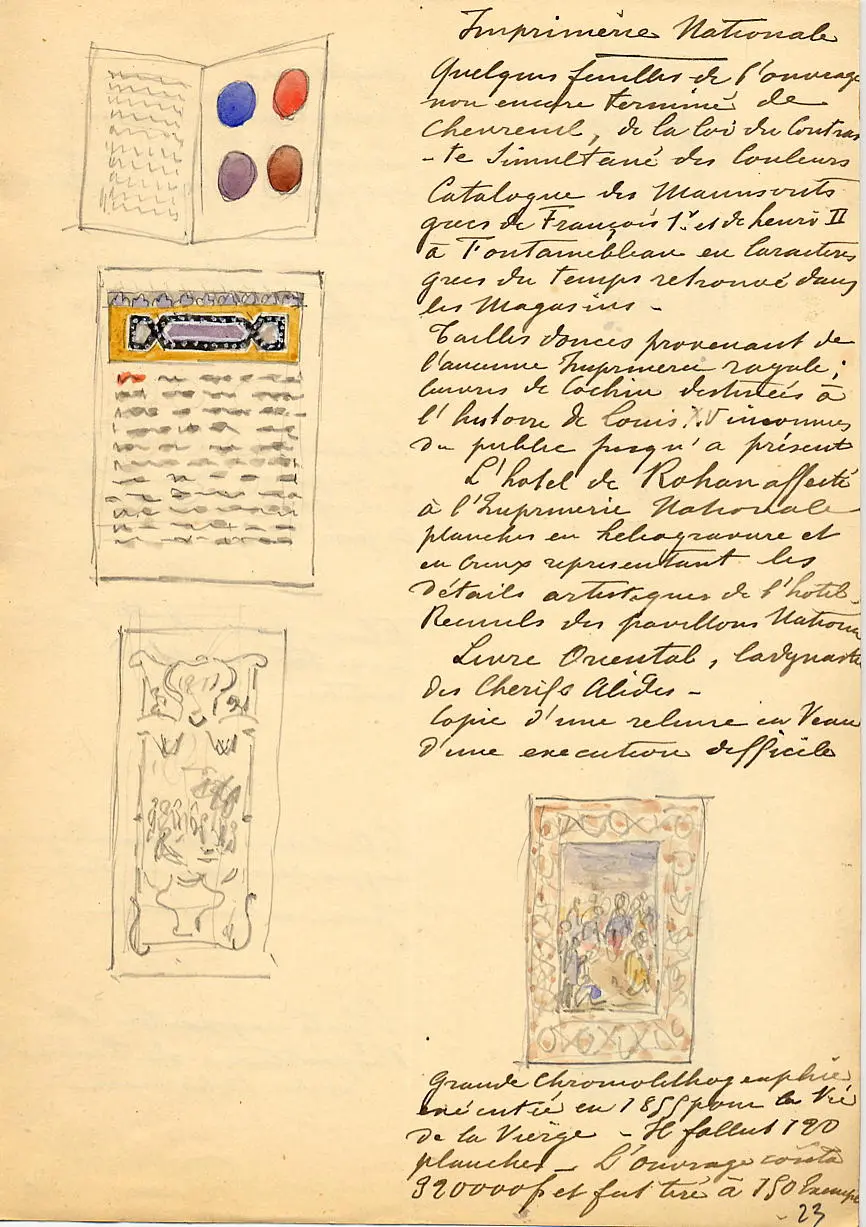 Imprimerie Nationale
Quelques feuilles de l'ouvrage
non encore terminé de
Chevreul, de la loi du Contras
-te Simultané des Couleurs
Catalogue des Manuscrits
grecs de François 1er et de henri II
à Fontainebleau en Caractères
grecs du temps retrouvé dans
les Magasins -
Tailles douces provenant de
l'ancienne Imprimerie royale;
Cuivres de Cochin destinées à
l'histoire de Louis XV inconnues
du public jusqu'a présent
L'hotel de Rohan affecté
à l'Imprimerie Nationale
planches en heliogravure et
en creux representant les
Détails artistiques de l'hotel.
Recueils des pavillons Nationa
Livre Oriental, la dynastie
des Cherifs Alides -
Copie d'une reliure en Veau
d'une execution difficile
Grande Chromolithographie
exécutée en 1855 pour la Vie
de la Vierge - Il fallut 190
planches - L'ouvrage couta
320000f et fut tiré à 150 Exemp
- 23